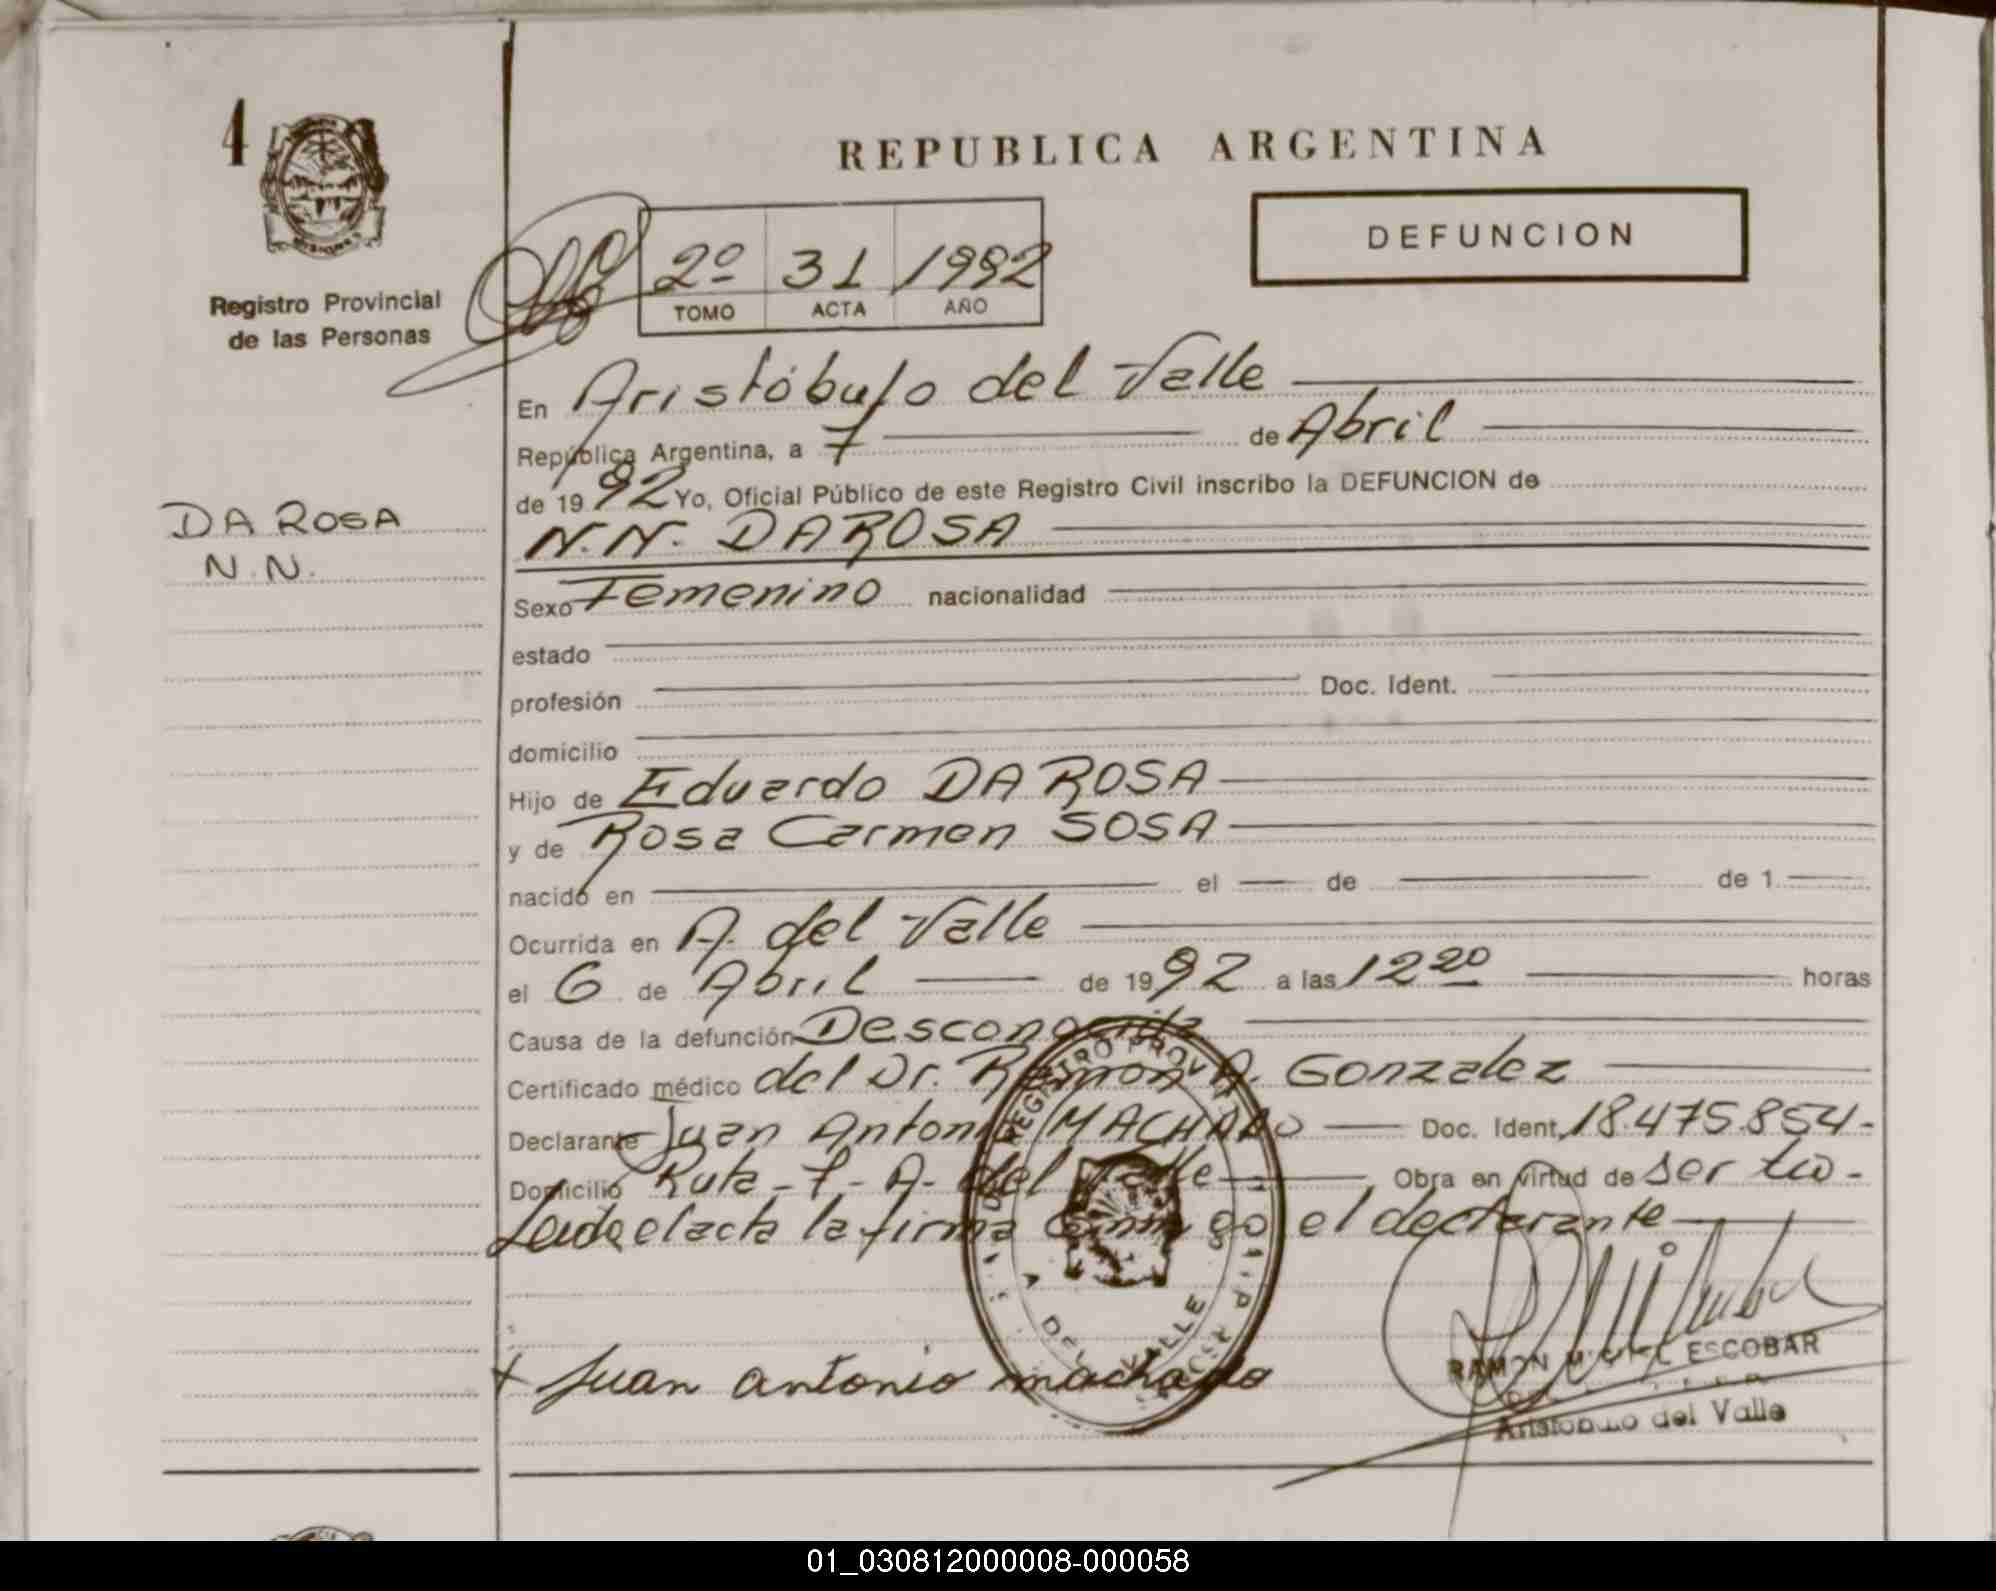 4
MISIONES
Registro Provincial
de las Personas
DA ROSA
N.N.
REPUBLICA ARGENTINA
DEFUNCION
2º 31 1992
TOMO ACTA AÑO
En Aristóbulo del Valle
República Argentina, a 7 de Abril
de 1992 Yo, Oficial Público de este Registro Civil inscribo la DEFUNCION de
N.N. DA ROSA
Sexo Femenino nacionalidad
estado
profesión Doc. Ident.
domicilio
Hijo de Eduardo DA ROSA
y de Rosa Carmen SOSA
nacido en el de de 1
Ocurrida en A. del Valle
el 6 de Abril de 1992 a las 12 20 horas
Causa de la defunción Desconocida
Certificado médico del Dr. Ramon A. Gonzalez
Declarante Juan Antonio MACHADO Doc. Ident. 18.475.854-
Domicilio Ruta - 7 - A. del Valle Obra en virtud de ser tio -
Leida el acta la firma conmigo el declarante
REGISTRO PROV.
DEL VALLE
+ Juan antonio machado
RAMON MIGUEL ESCOBAR
Aristobulo del Valle
01_030812000008-000058